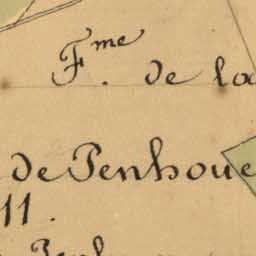 F.me de la
de Penhoue
11.